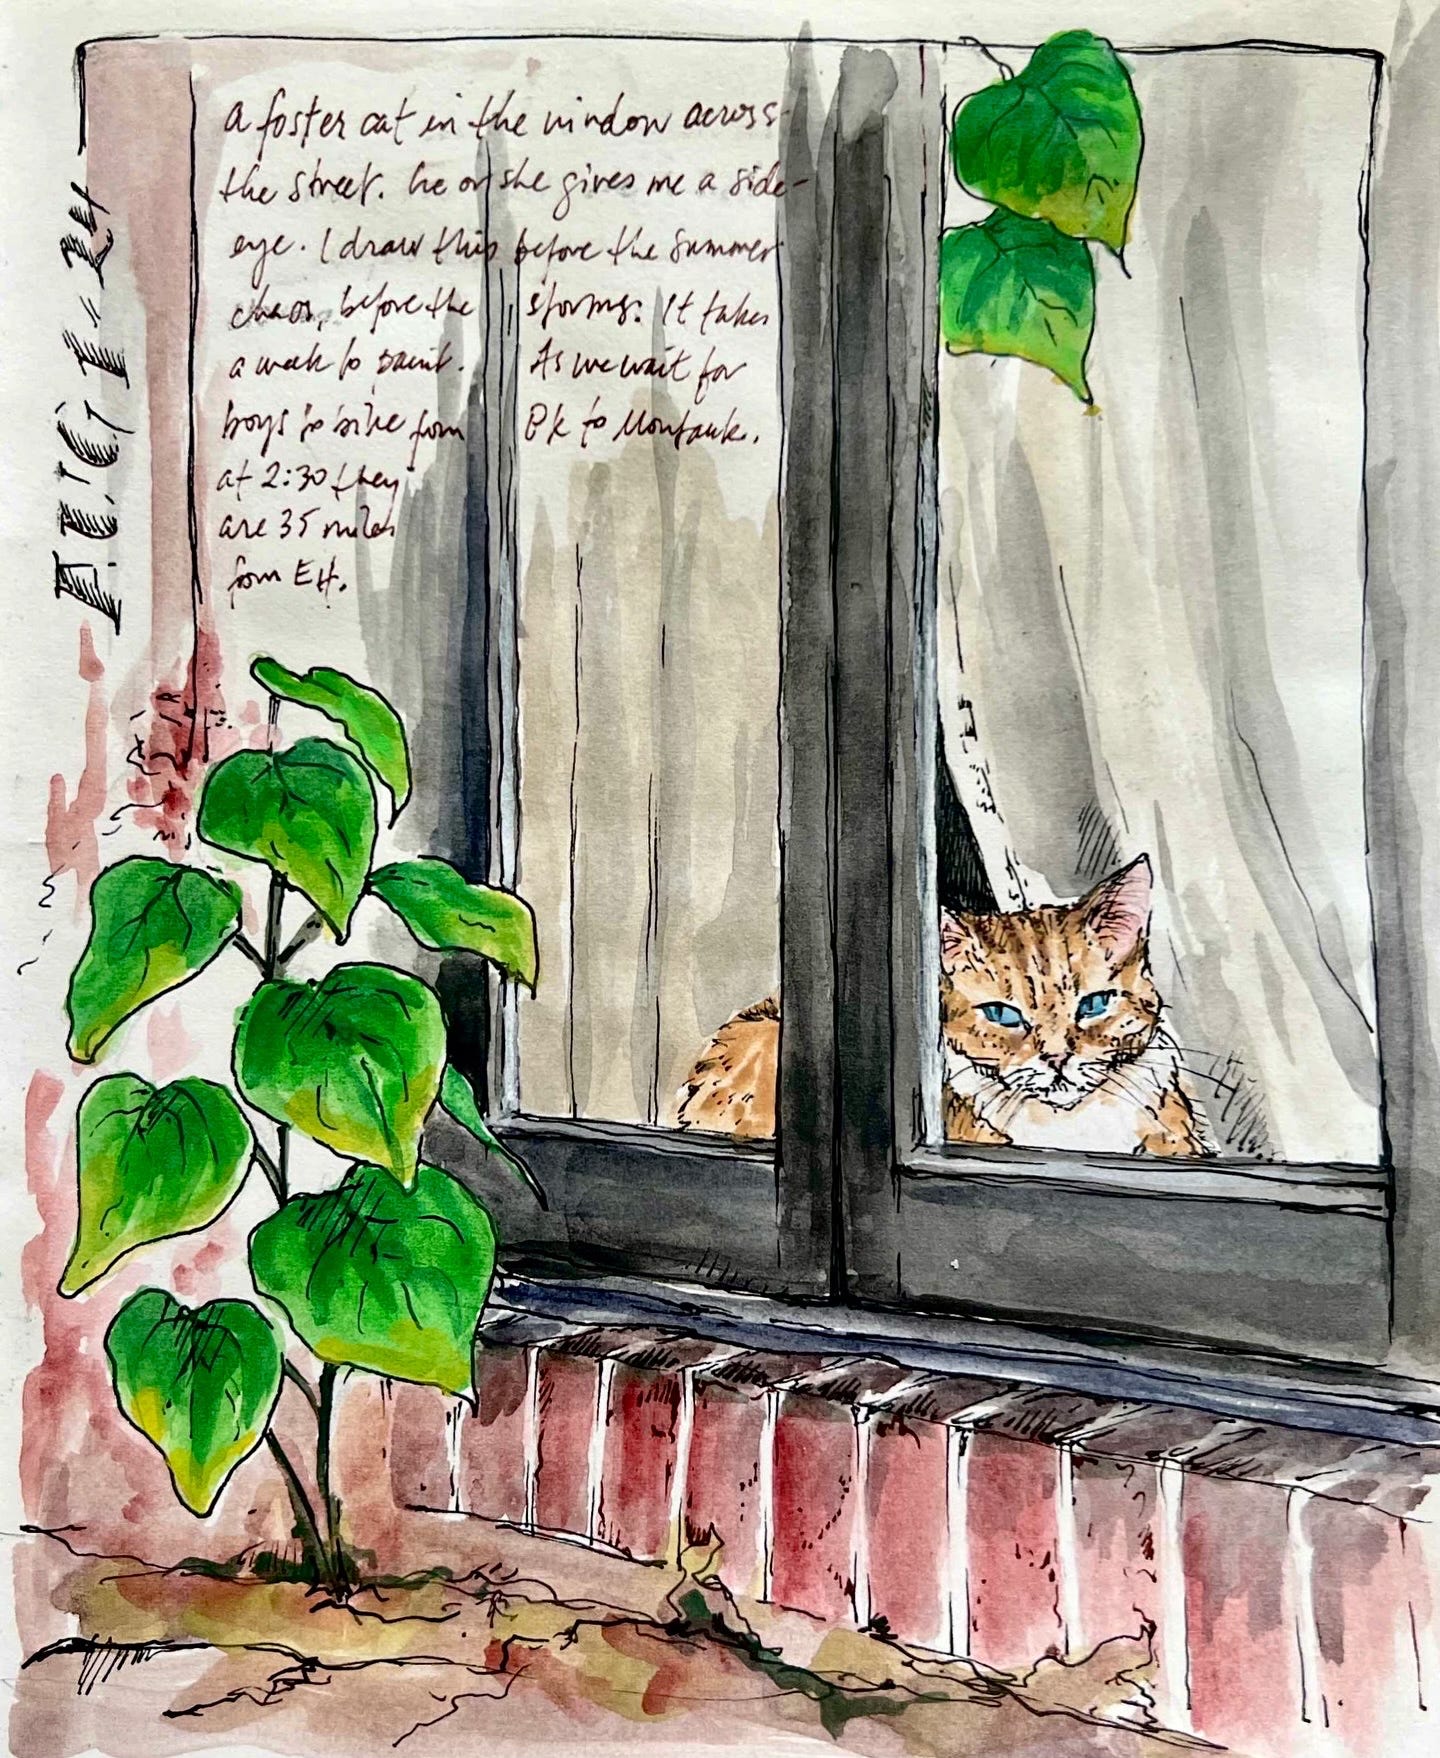 a foster cat in the window across
the street. he or she gives me a side-
eye. I draw this before the summer
chaos, before the storms. It takes
a week to paint. As we wait for
boys to bike from BK to Montauk.
at 2:30 they
are 35 miles
from EH.